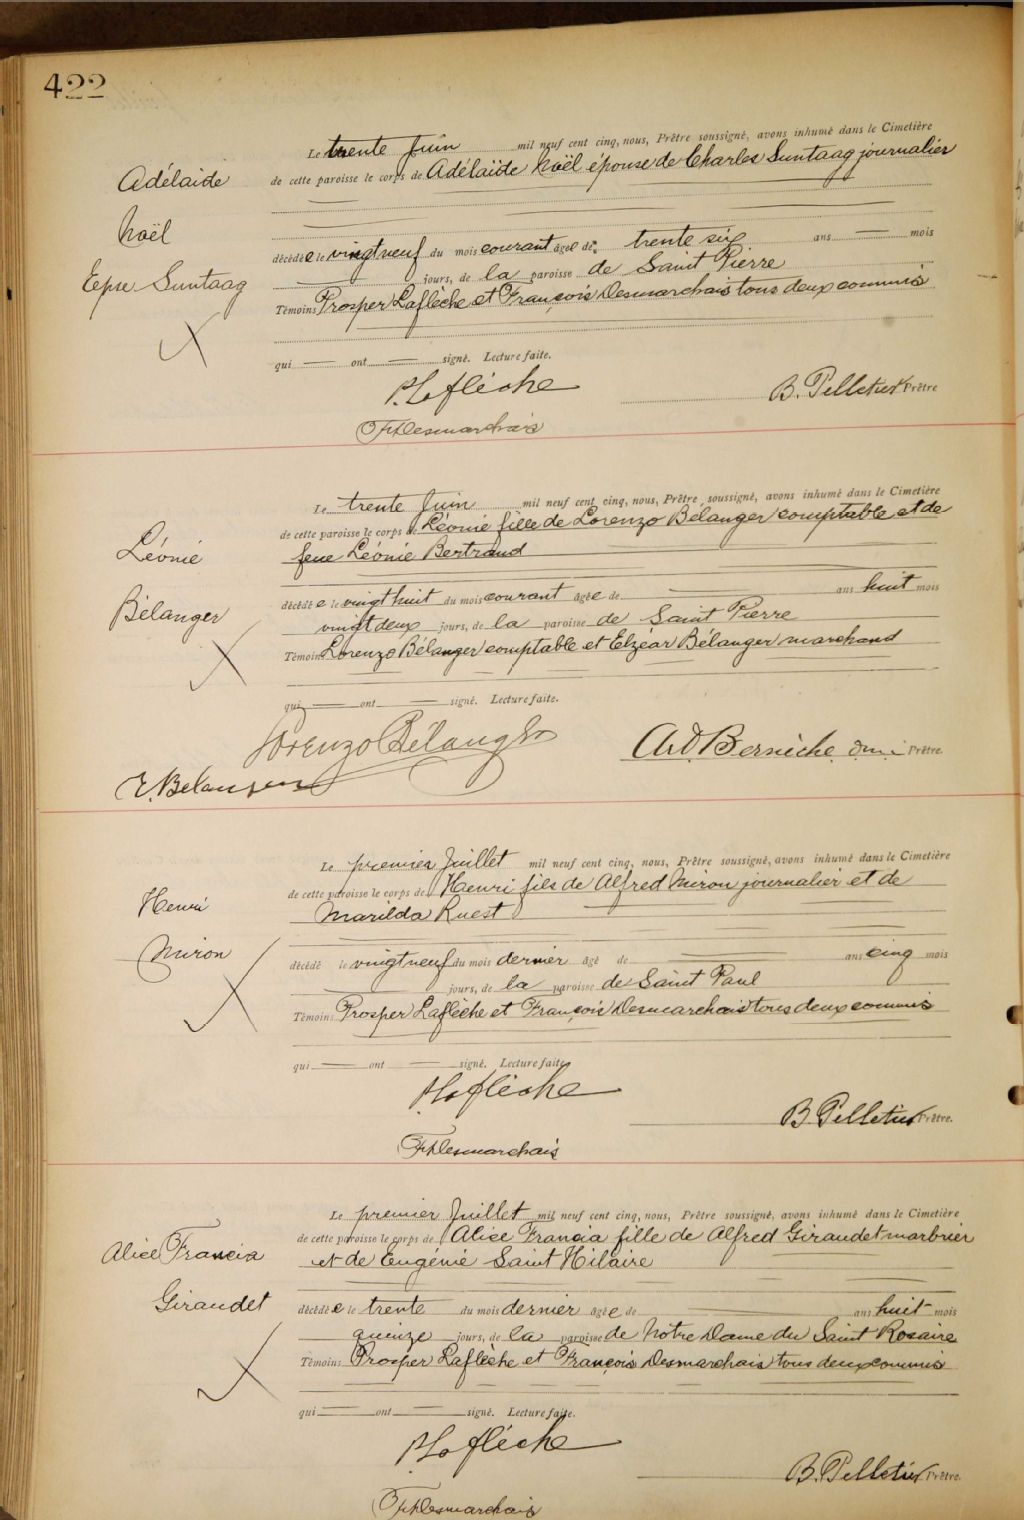 422
Le trente Juin mil neuf cent cinq, nous, Prêtre soussigné, avons inhumé dans le Cimetière
Adélaide
de cette paroisse le corps de Adélaïde Noël épouse de Charles Suntaag journalier
Noël
décédée le vingt neuf du mois courant âgée de trente six ans — mois
Epse Suntaag
— jours, de la paroisse de Saint Pierre
Témoins Prosper Laflèche et François Desmarchais tous deux commis
qui — ont — signé. Lecture faite.
P. Laflèche
B. Pelletier Prêtre
F.X. Desmarchais
Le trente Juin mil neuf cent cinq, nous, Prêtre soussigné, avons inhumé dans le Cimetière
de cette paroisse le corps de Léonie fille de Lorenzo Bélanger comptable et de
Léonie
feue Léonie Bertrand
décédée le vingt huit du mois courant âgée de — ans huit mois
Bélanger
vingt deux jours, de la paroisse de Saint Pierre
Témoins Lorenzo Bélanger comptable et Elzéar Bélanger marchand
qui — ont — signé. Lecture faite.
Lorenzo Bélanger
Ard. Bernèche o.m.i. Prêtre.
E. Belanger
Le premier Juillet mil neuf cent cinq, nous, Prêtre soussigné, avons inhumé dans le Cimetière
de cette paroisse le corps de Henri fils de Alfred Miron journalier et de
Henri
Marilda Ruest
Miron
décédé le vingt neuf du mois dernier âgé de — ans cinq mois
— jours, de la paroisse de Saint Paul
Témoins Prosper Laflèche et François Desmarchais tous deux commis
qui — ont — signé. Lecture faite.
P. Laflèche
B. Pelletier Prêtre.
F.X. Desmarchais
Le premier Juillet mil neuf cent cinq, nous, Prêtre soussigné, avons inhumé dans le Cimetière
de cette paroisse le corps de Alice Francia fille de Alfred Giraudet marbrier
Alice Francia
et de Eugénie Saint Hilaire
Giraudet
décédée le trente du mois dernier âgée de — ans huit mois
quinze jours, de la paroisse de Notre Dame du Saint Rosaire
Témoins Prosper Laflèche et François Desmarchais tous deux commis
qui — ont — signé. Lecture faite.
P. Laflèche
B. Pelletier Prêtre.
F.X. Desmarchais